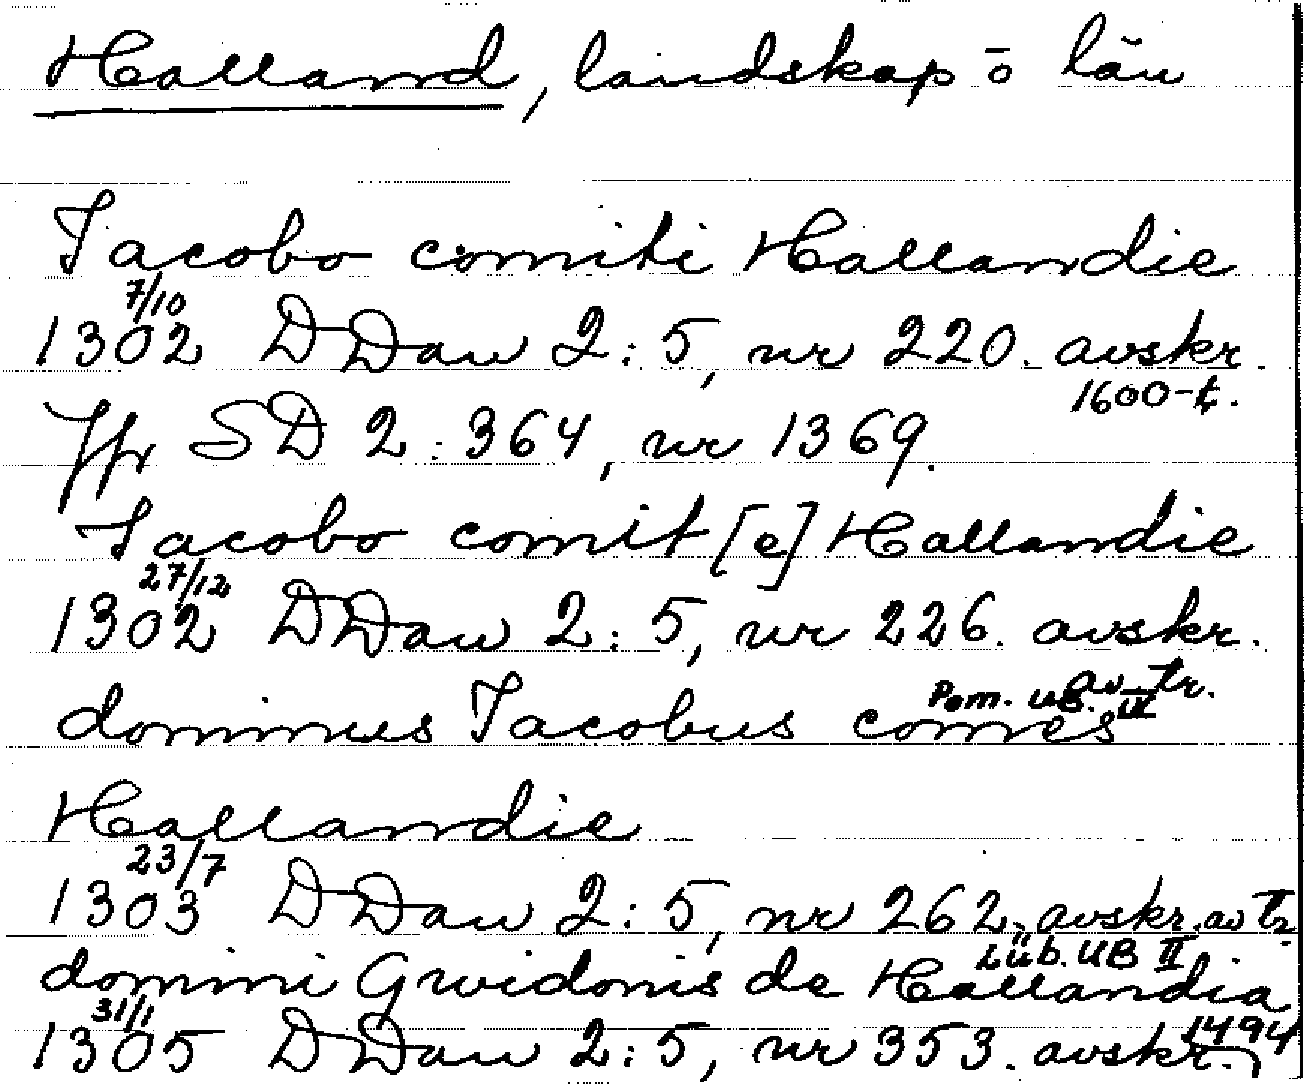 Halland, landskap o län
Jacobo comiti Hallandie
7/10
1302 DDan 2:5, nr 220. avskr.
1600-t.
Jfr SD 2:364, nr 1369.
Jacobo comit[e] Hallandie
27/12
1302 DDan 2:5, nr 226. avskr.
av tr.
Pom. UB. IV
dominus Jacobus comes
Hallandie
23/7
1303 DDan 2:5, nr 262, avskr. av tr.
Lüb. UB II.
domini Gwidonis de Hallandia
31/1
1305 DDan 2:5, nr 353. avskr.
1494